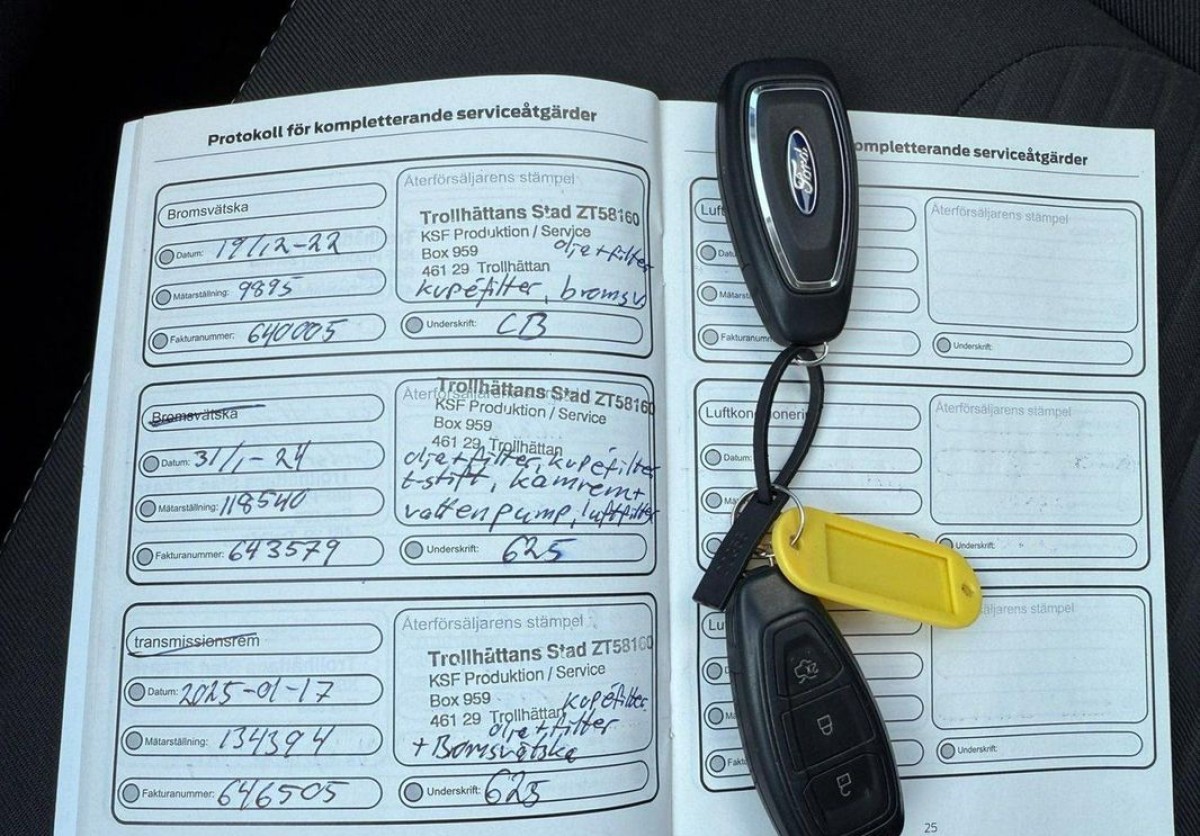 Protokoll för kompletterande serviceåtgärder
Bromsvätska
Datum: 19/12-22
Mätarställning: 9895
Fakturanummer: 640005
Återförsäljarens stämpel
Trollhättans Stad ZT58160
KSF Produktion / Service
Box 959
olja+filter
461 29 Trollhättan
kupéfilter, bromsv
Underskrift: CB
Bromsvätska
Datum: 31/1-24
Mätarställning: 118540
Fakturanummer: 643579
Återförsäljarens stämpel
Trollhättans Stad ZT58160
KSF Produktion / Service
Box 959
461 29 Trollhättan
olja+filter, kupéfilter
t-stift, kamrem+
vattenpump, luftfilter
Underskrift: 625
transmissionsrem
Datum: 2025-01-17
Mätarställning: 134394
Fakturanummer: 646505
Återförsäljarens stämpel
Trollhättans Stad ZT58160
KSF Produktion / Service
Box 959
kupéfilter
461 29 Trollhättan
olja+filter
+ Bromsvätska
Underskrift: 625
ompletterande serviceåtgärder
Luf
Mätarst
Fakturanum
Återförsäljarens stämpel
Underskrift:
Luftkonditionerin
Datum:
Mä
Återförsäljarens stämpel
Underskrift:
Lu
Fakt
äljarens stämpel
Underskrift:
25
Ford